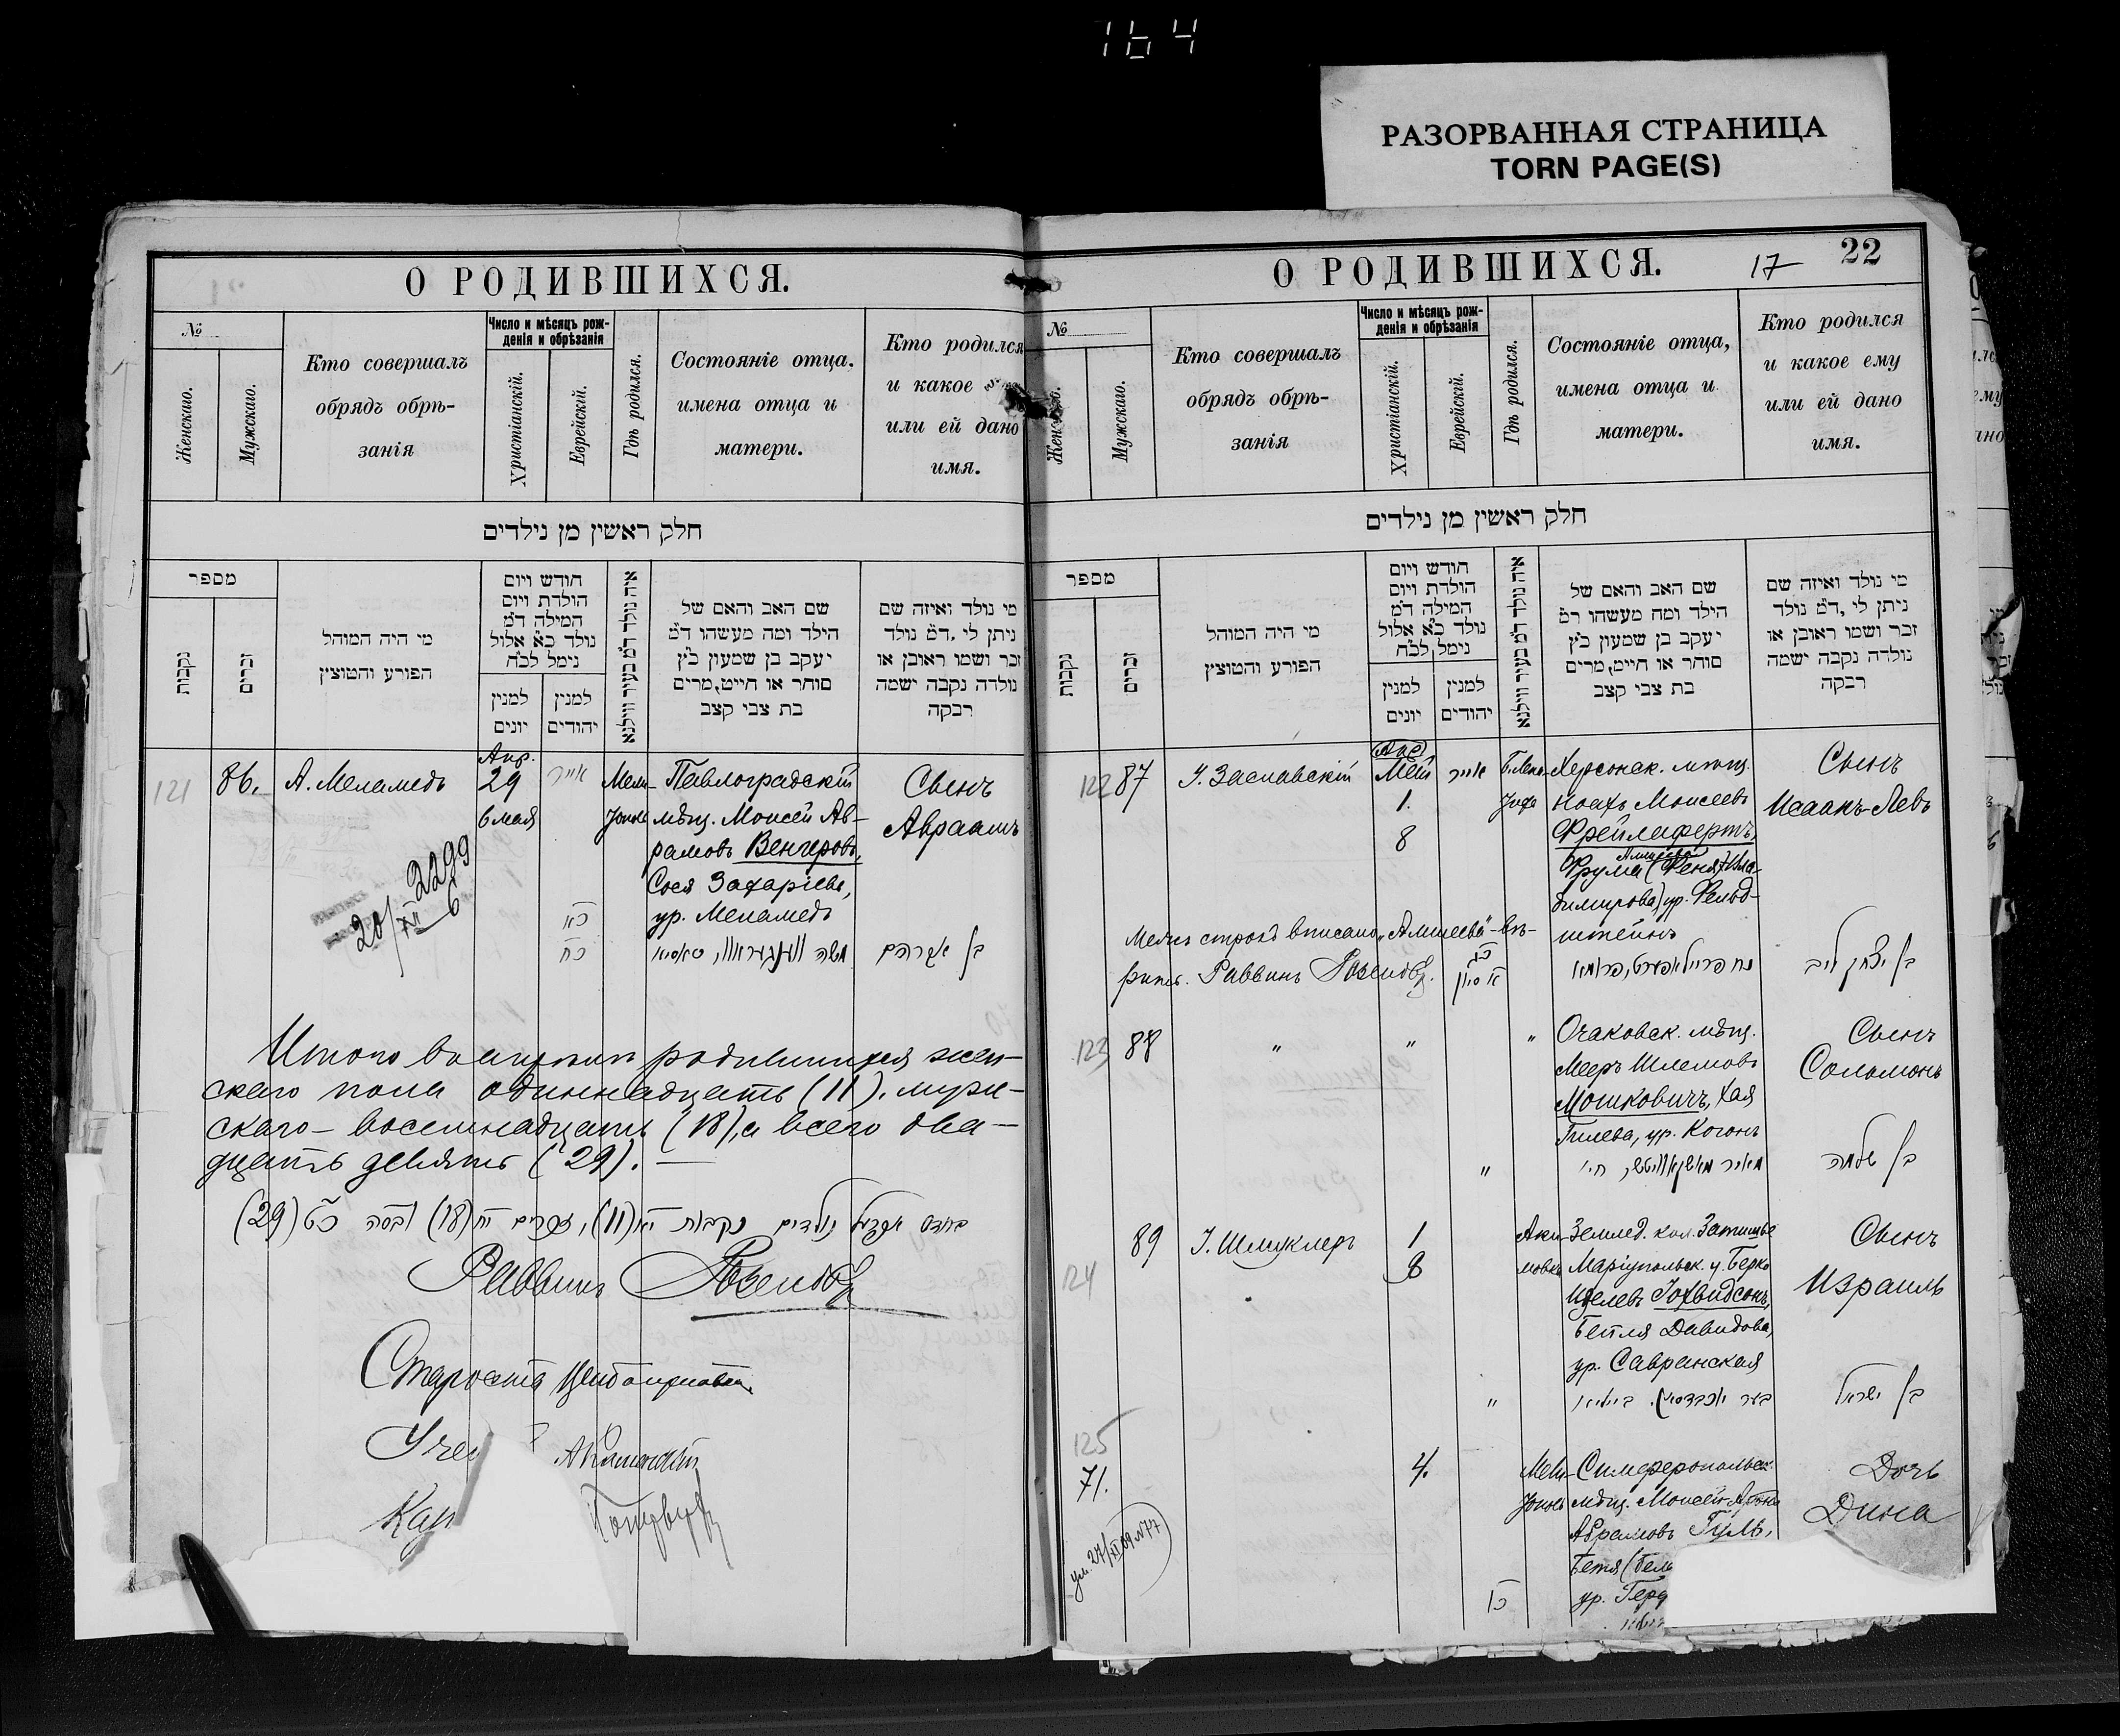 164
РАЗОРВАННАЯ СТРАНИЦА
TORN PAGE(S)
О РОДИВШИХСЯ.
№
Женскаго.
Мужскаго.
Кто совершалъ
обрядъ обрѣ-
занія
Число и мѣсяцъ рож-
денія и обрѣзанія
Христіанскій.
Еврейскій.
Гдѣ родился.
Состояніе отца.
имена отца и
матери.
Кто родился
и какое
или ей дано
имя.
חלק ראשין מן נילדים
מספר
נקבות
זכרים
מי היה המוהל
הפורע והמוצץ
חודש ויום
הולדת ויום
המילה ד״מ
נולד כ״א אלול
נימל לכ״ח
למנין
יונים
למנין
יהודים
איה נולד ד״מ בעיר ווילנא
שם האב והאם של
הילד ומה מעשהו ד״מ
יעקב בן שמעון כ״ץ
סוחר או חייט, מרים
בת צבי קצב
מי נולד ואיזה שם
ניתן לי, ד״מ נולד
זכר ושמו ראובן או
נולדה נקבה ישמה
רבקה
121
86.
А. Меламедъ
Апр.
29
6 мая
אייר
כא
כח
Мели-
тополь
Павлоградскій
мѣщ. Моисей Ав-
рамовъ Венгеровъ,
Сося Захаріева,
ур. Меламедъ
Сынъ
Авраамъ
בן אברהם
2299
20/XII 6
Итого въ апрѣлѣ родившихся жен-
скаго пола одиннадцать (11), муж-
скаго – восемнадцать (18), а всего два-
дцать девять (29). —
בחודש אפריל נולדים נקבות יא (11), זכרים יח (18) ובסה כט (29)
Раввинъ
Староста
О РОДИВШИХСЯ.
17
22
№
Женскаго.
Мужскаго.
Кто совершалъ
обрядъ обрѣ-
занія
Число и мѣсяцъ рож-
денія и обрѣзанія
Христіанскій.
Еврейскій.
Гдѣ родился.
Состояніе отца,
имена отца и
матери.
Кто родился
и какое ему
или ей дано
имя.
חלק ראשין מן נילדים
מספר
נקבות
זכרים
מי היה המוהל
הפורע והמוצץ
חודש ויום
הולדת ויום
המילה ד״מ
נולד כ״א אלול
נימל לכ״ח
למנין
יונים
למנין
יהודים
איה נולד ד״מ בעיר ווילנא
שם האב והאם של
הילד ומה מעשהו ד״מ
יעקב בן שמעון כ״ץ
סוחר או חייט, מרים
בת צבי קצב
מי נולד ואיזה שם
ניתן לי, ד״מ נולד
זכר ושמו ראובן או
נולדה נקבה ישמה
רבקה
122
87
І. Заславскій
Май
1.
8
אייר
Херсонск. мѣщ.
Ноахъ Моисеевъ
Фрейлафертъ,
Фрума (Феня) Вла-
димирова, ур. Фельд-
штейнъ
Сынъ
Исаакъ-Левъ
Межъ строкъ вписано „Алтеева“ – вѣ-
рить. Раввинъ
א סיון
בן יצחק ליב
123
88
"
"
"
Очаковск. мѣщ.
Мееръ Шлемовъ
Мошковичъ, Хая
Гилева, ур. Коганъ
Сынъ
Соломонъ
"
בן שלמה
124
89
І. Шмуклеръ
1
8
Аки-
мовка
Землед. кол. Затишье
Маріупольск. у. Берко
Іохвидсонъ,
Бейля Давидова,
ур. Савранская
Сынъ
Израиль
"
בן ישראל
125
71.
4.
Мели-
тополь
Симферопольск.
мѣщ. Моисей-
Абрамовъ Гуль,
ур.
Дочь
Дина